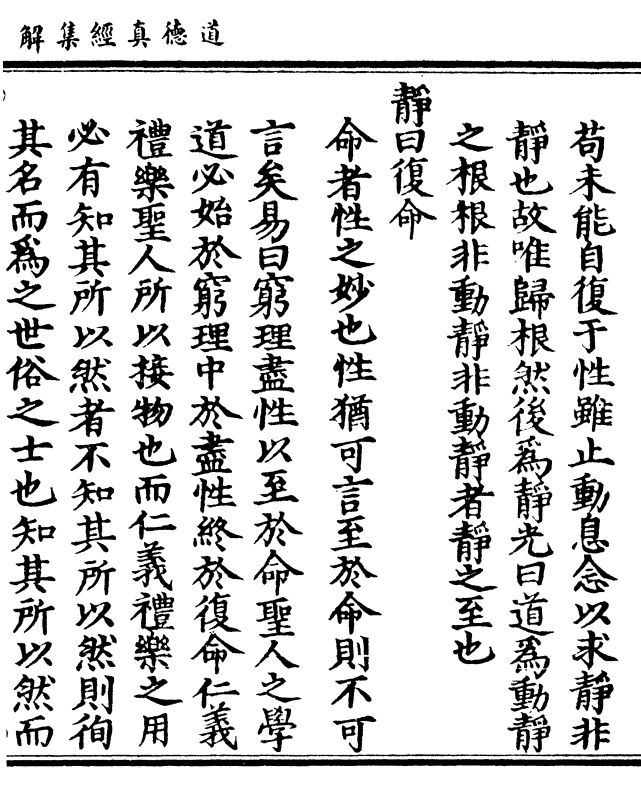 道德真經集解
苟未能自復于性雖止動息念以求靜非
靜也故唯歸根然後爲靜光曰道爲動靜
之根根非動靜非動靜者靜之至也
靜曰復命
命者性之妙也性猶可言至於命則不可
言矣易曰窮理盡性以至於命聖人之學
道必始於窮理中於盡性終於復命仁義
禮樂聖人所以接物也而仁義禮樂之用
必有知其所以然者不知其所以然則徇
其名而爲之世俗之士也知其所以然而